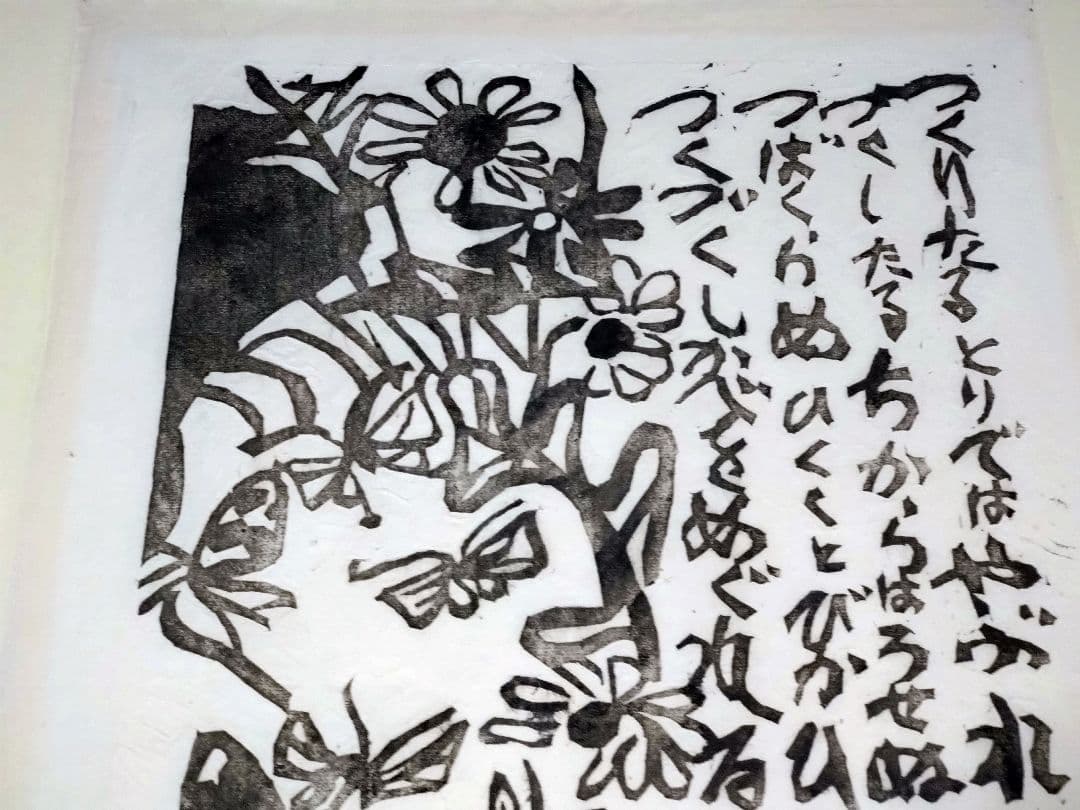 つくりたるとりではやぶれ
つくしたるちからはうせぬ
つばくらめひくくとびかひ
つくづくしかどをめぐれる